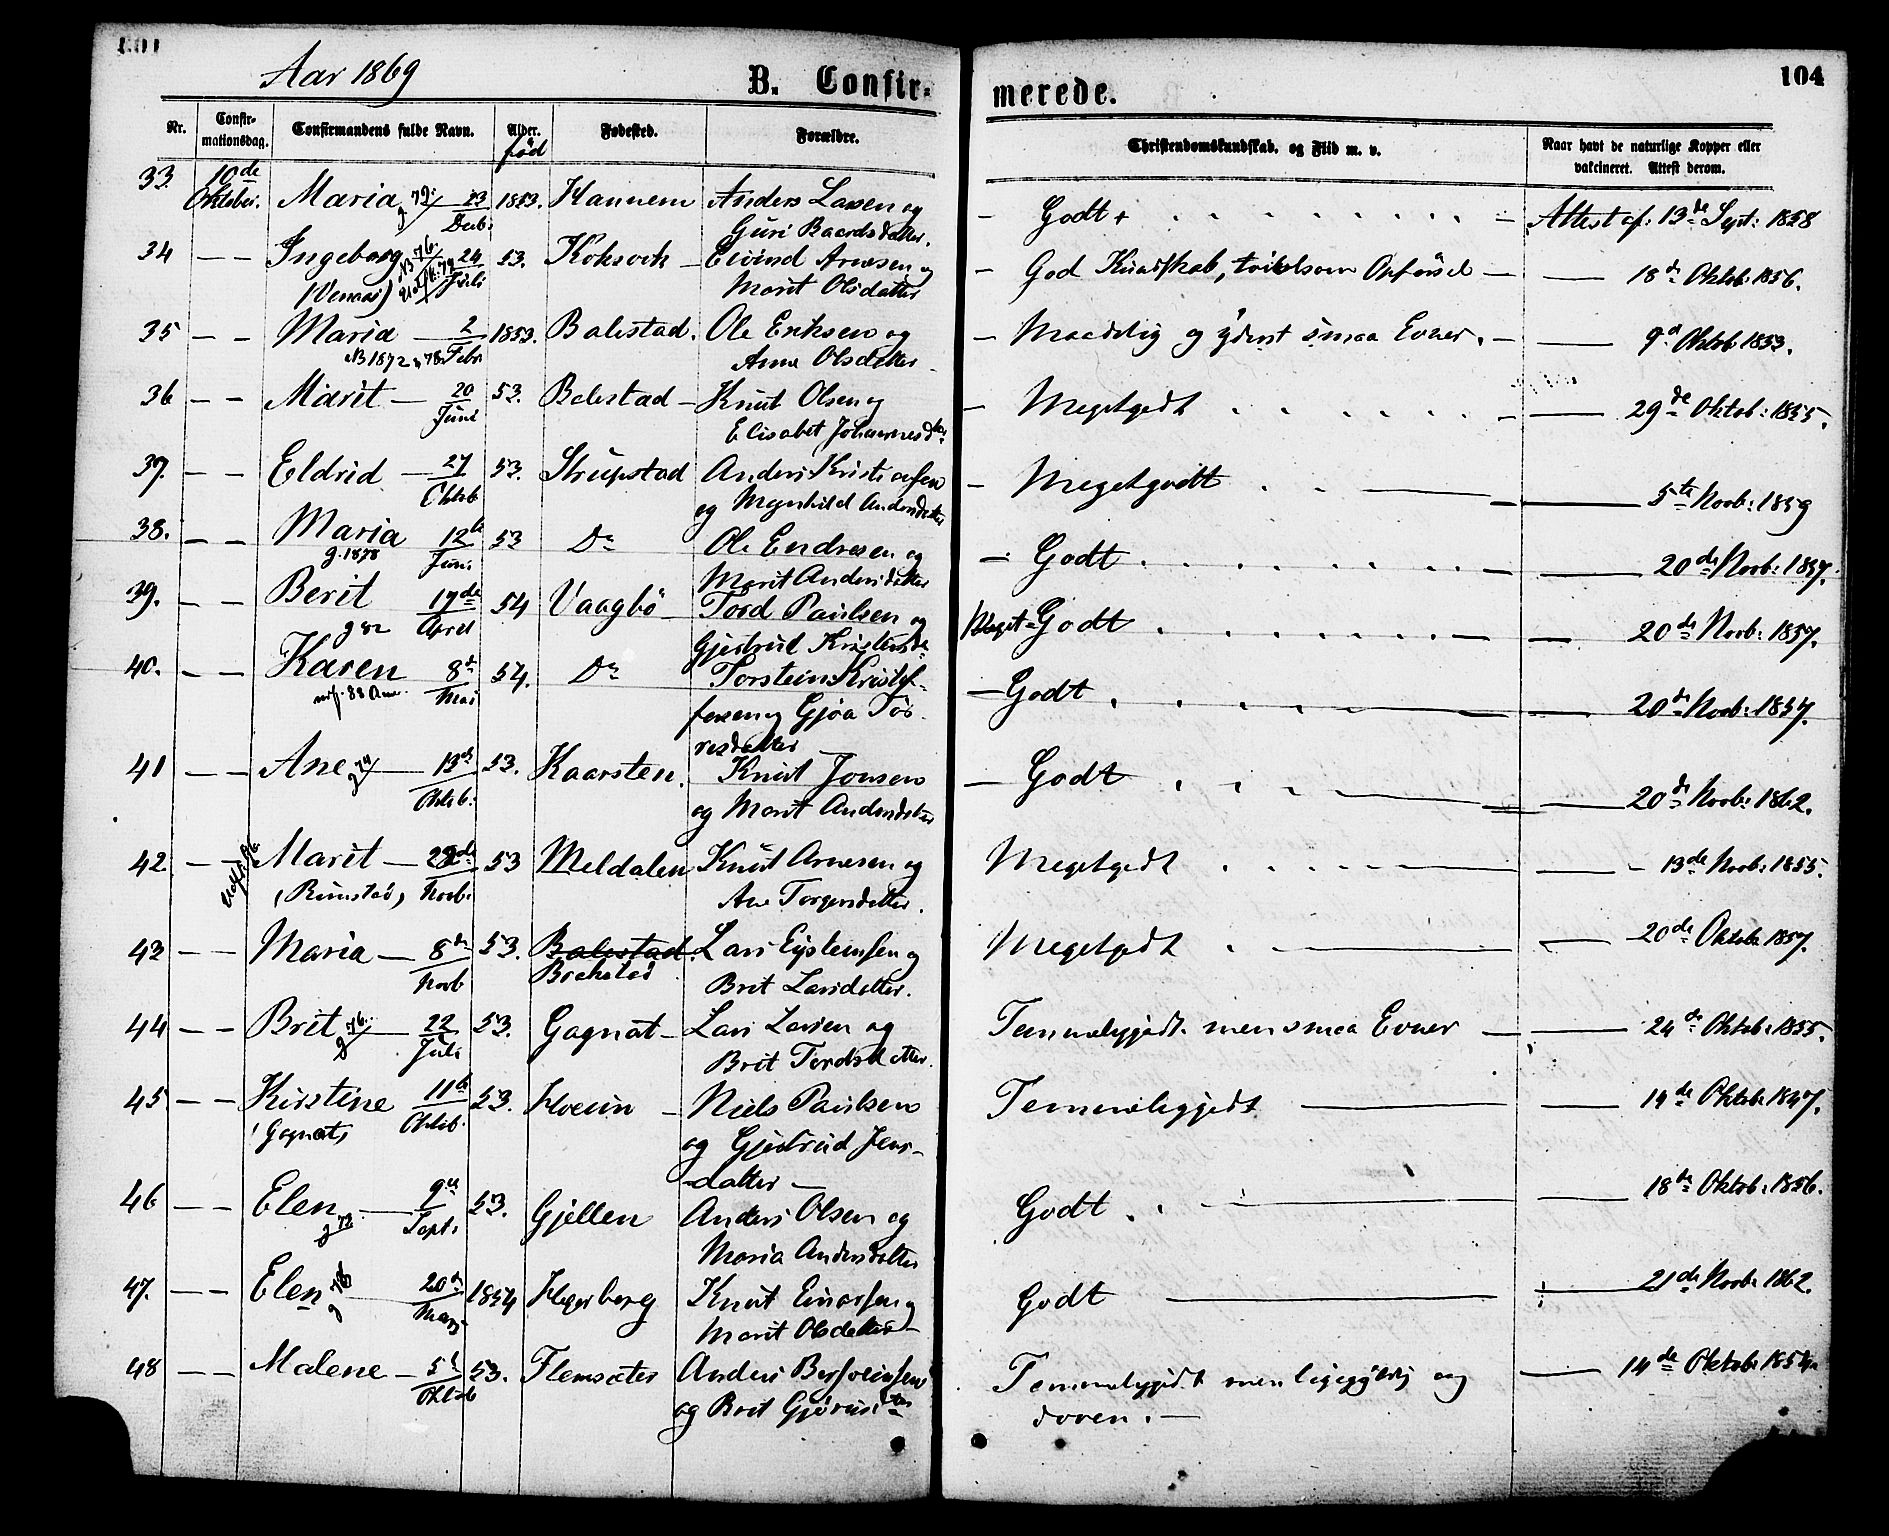 104
Aar 1869
B. Confirmerede.
Nr. Confirmationsdag. Confirmandens fulde Navn. Alder. Fødested. Forældre. Christendomskundskab, og Flid m. v. Naar havt de naturlige Kopper eller vakcineret. Attest derom.
født
33. 10de Oktober. Maria 23 Decb. 1853. Hannem Anders Larsen og Godt Attest af: 13de Sept: 1858
Guri Baardsdatter.
34 — — Ingeborg 24 Juli 53. Koksvik — Eivind Arnesen og God Kundskab, tvivlsom Opførsel — 18de Oktob: 1856.
Marit Olsdatter
35 — — Maria — 2 Febr 1853. Bolestad. Ole Eriksen og Maadelig og yderst smaa Evner. — 9de Oktob 1853.
Ane Olsdatter
36 — — Marit — 20 Juni 53. Bolestad — Knut Olsen og Megetgodt — 29de Oktob: 1855.
Elisabet Johannesdtr
37. — — Eldrid — 27 Oktob 53. Strupstad Anders Kristiansen Megetgodt — 5te Novb: 1859
og Magnhild Andersdatter
38. — — Maria 12te Juni 53 Do Ole Endresen og Godt — 20de Novb: 1857.
g. 1878 Marit Andersdatter
39. — — Berit 17de April 54 Vaagbø — Tord Paulsen og Meget Godt — 20de Novb: 1857.
g 82 Gjertrud Kristensd
40. — — Karen 8de Mai 54. Do Torstein Kristof- Godt — 20de Novb: 1857.
fersen og Gjøa Tor-
resdatter
41 — — Ane 13de Oktob. 53. Kaarsten. Knut Jonsen Godt — 20de Novb: 1862.
g 74 og Marit Andersdatter
42. — — Marit — Novb. 53 Meldalen Knut Arnesen og Megetgodt — 13de Novb: 1855.
(Rimstad) Ane Torgersdatter.
43 — — Maria — 8de Novb 53. Bolestad. Lars Eysteinsen og Megetgodt — 20de Oktob 1857.
Brekstad Brit Larsdatter.
44 — — Brit g 76. 22 Juli 53. Gagnat — Lars Larsen og Temmeliggodt men smaa Evner — 24de Oktob: 1855.
Brit Tordsdatter.
45 — — Kirstine 11te Oktob. 53. Hoem — Niels Paulsen Temmeliggodt — 14de Oktob 1847.
(Gagnat) og Gjertrud Jens-
datter —
46 — — Elen — 9de Sept. 53. Gjellen Anders Olsen og Godt — 18de Oktob: 1856.
Maria Andersdatter
47. — — Elen 20de Marz 1854 Hegerberg Knut Einarsen og Godt — 21de Novb: 1862.
Marit Olsdatter —
48 — — Malene — 5te Oktob 53. Flemsæter Anders Bersveinsen Temmeliggodt men ligegyldig og — 14de Oktob: 1854
og Brit Gjørens dtr doven. —